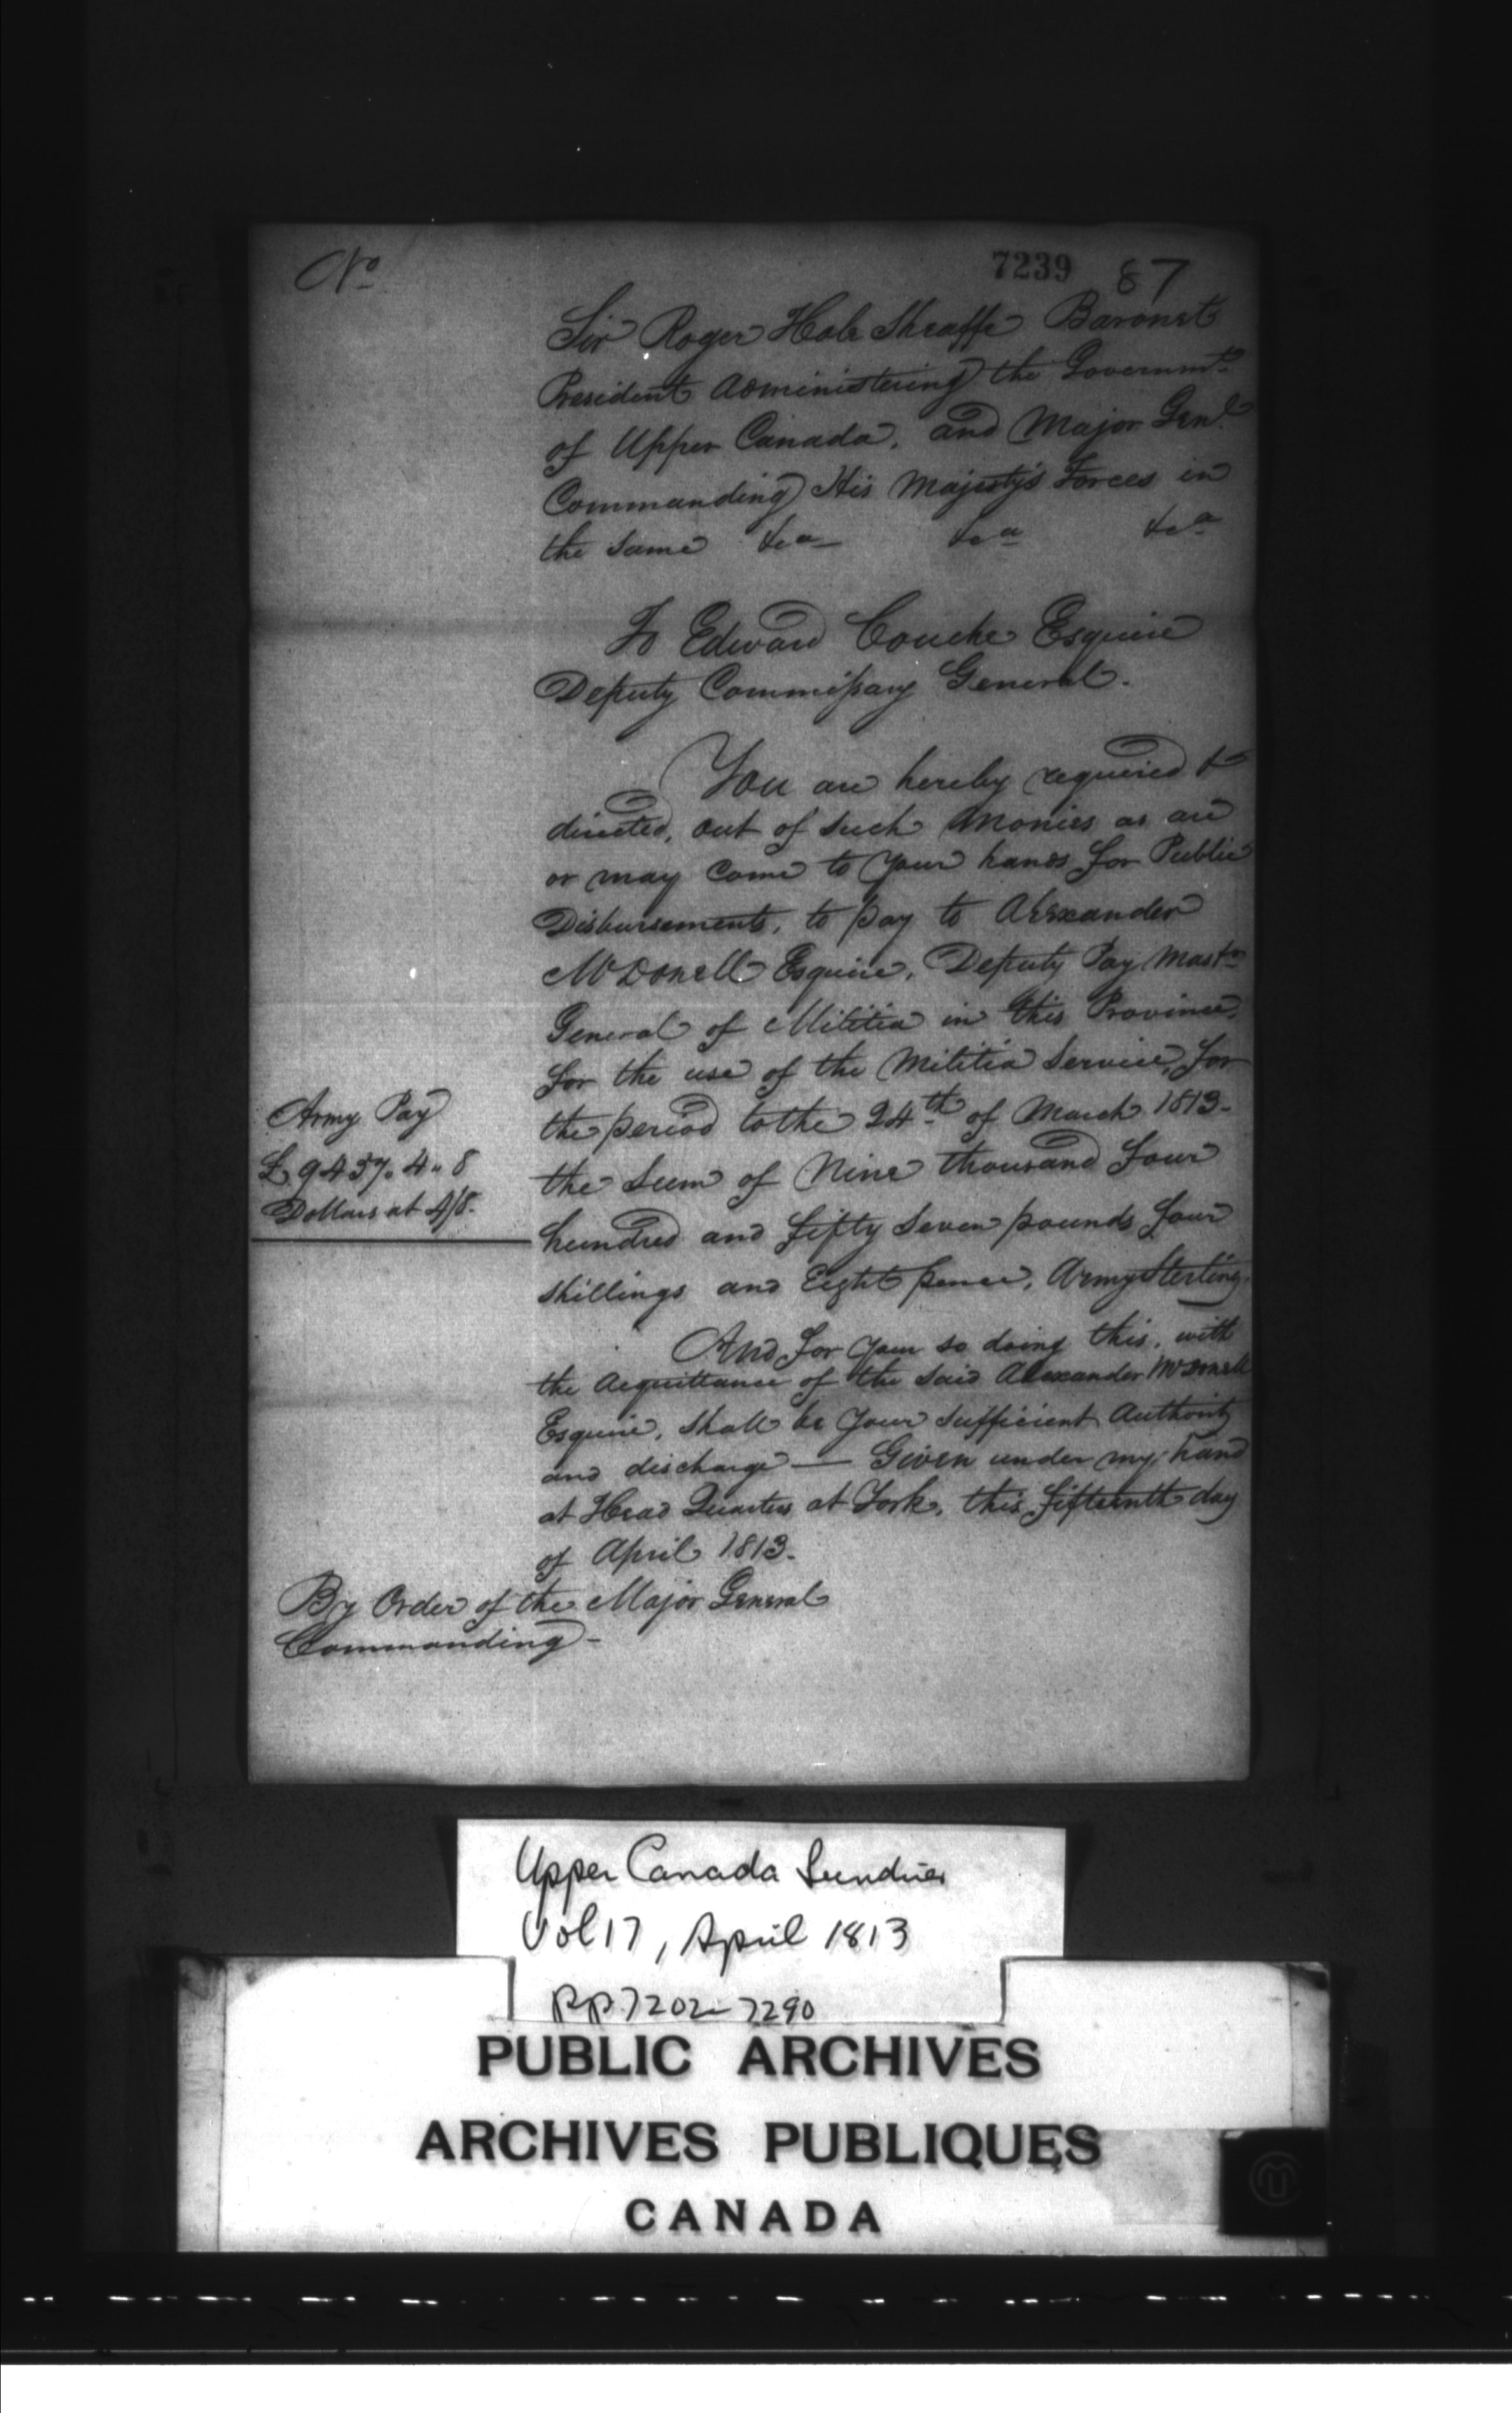 No
7239 87
Sir Roger Hale Sheaffe Baronet
President Administering the Governmt
of Upper Canada, and Major Genl
Commanding His Majesty's Forces in
the same &ca &ca &ca
To Edward Couche Esquire
Deputy Commissary General.
You are hereby required &
directed, out of such Monies as are
or may come to your hands for Public
Disbursements, to pay to Alexander
McDonell Esquire, Deputy Pay Mastr
General of Militia in this Province,
for the use of the Militia Service, for
the period to the 24th of March 1813.
the Sum of Nine thousand four
hundred and fifty seven pounds four
shillings and Eight pence, Army Sterling.
Army Pay
£9457. 4.. 8
Dollars at 4/8.
And for your so doing this, with
the Acquittance of the said Alexander McDonell
Esquire, shall be your sufficient Authority
and discharge — Given under my hand
at Head Quarters at York, this fifteenth day
of April 1813.
By Order of the Major General
Commanding -
Upper Canada Sundries
Vol 17, April 1813
pp 7202-7290
PUBLIC ARCHIVES
ARCHIVES PUBLIQUES
CANADA